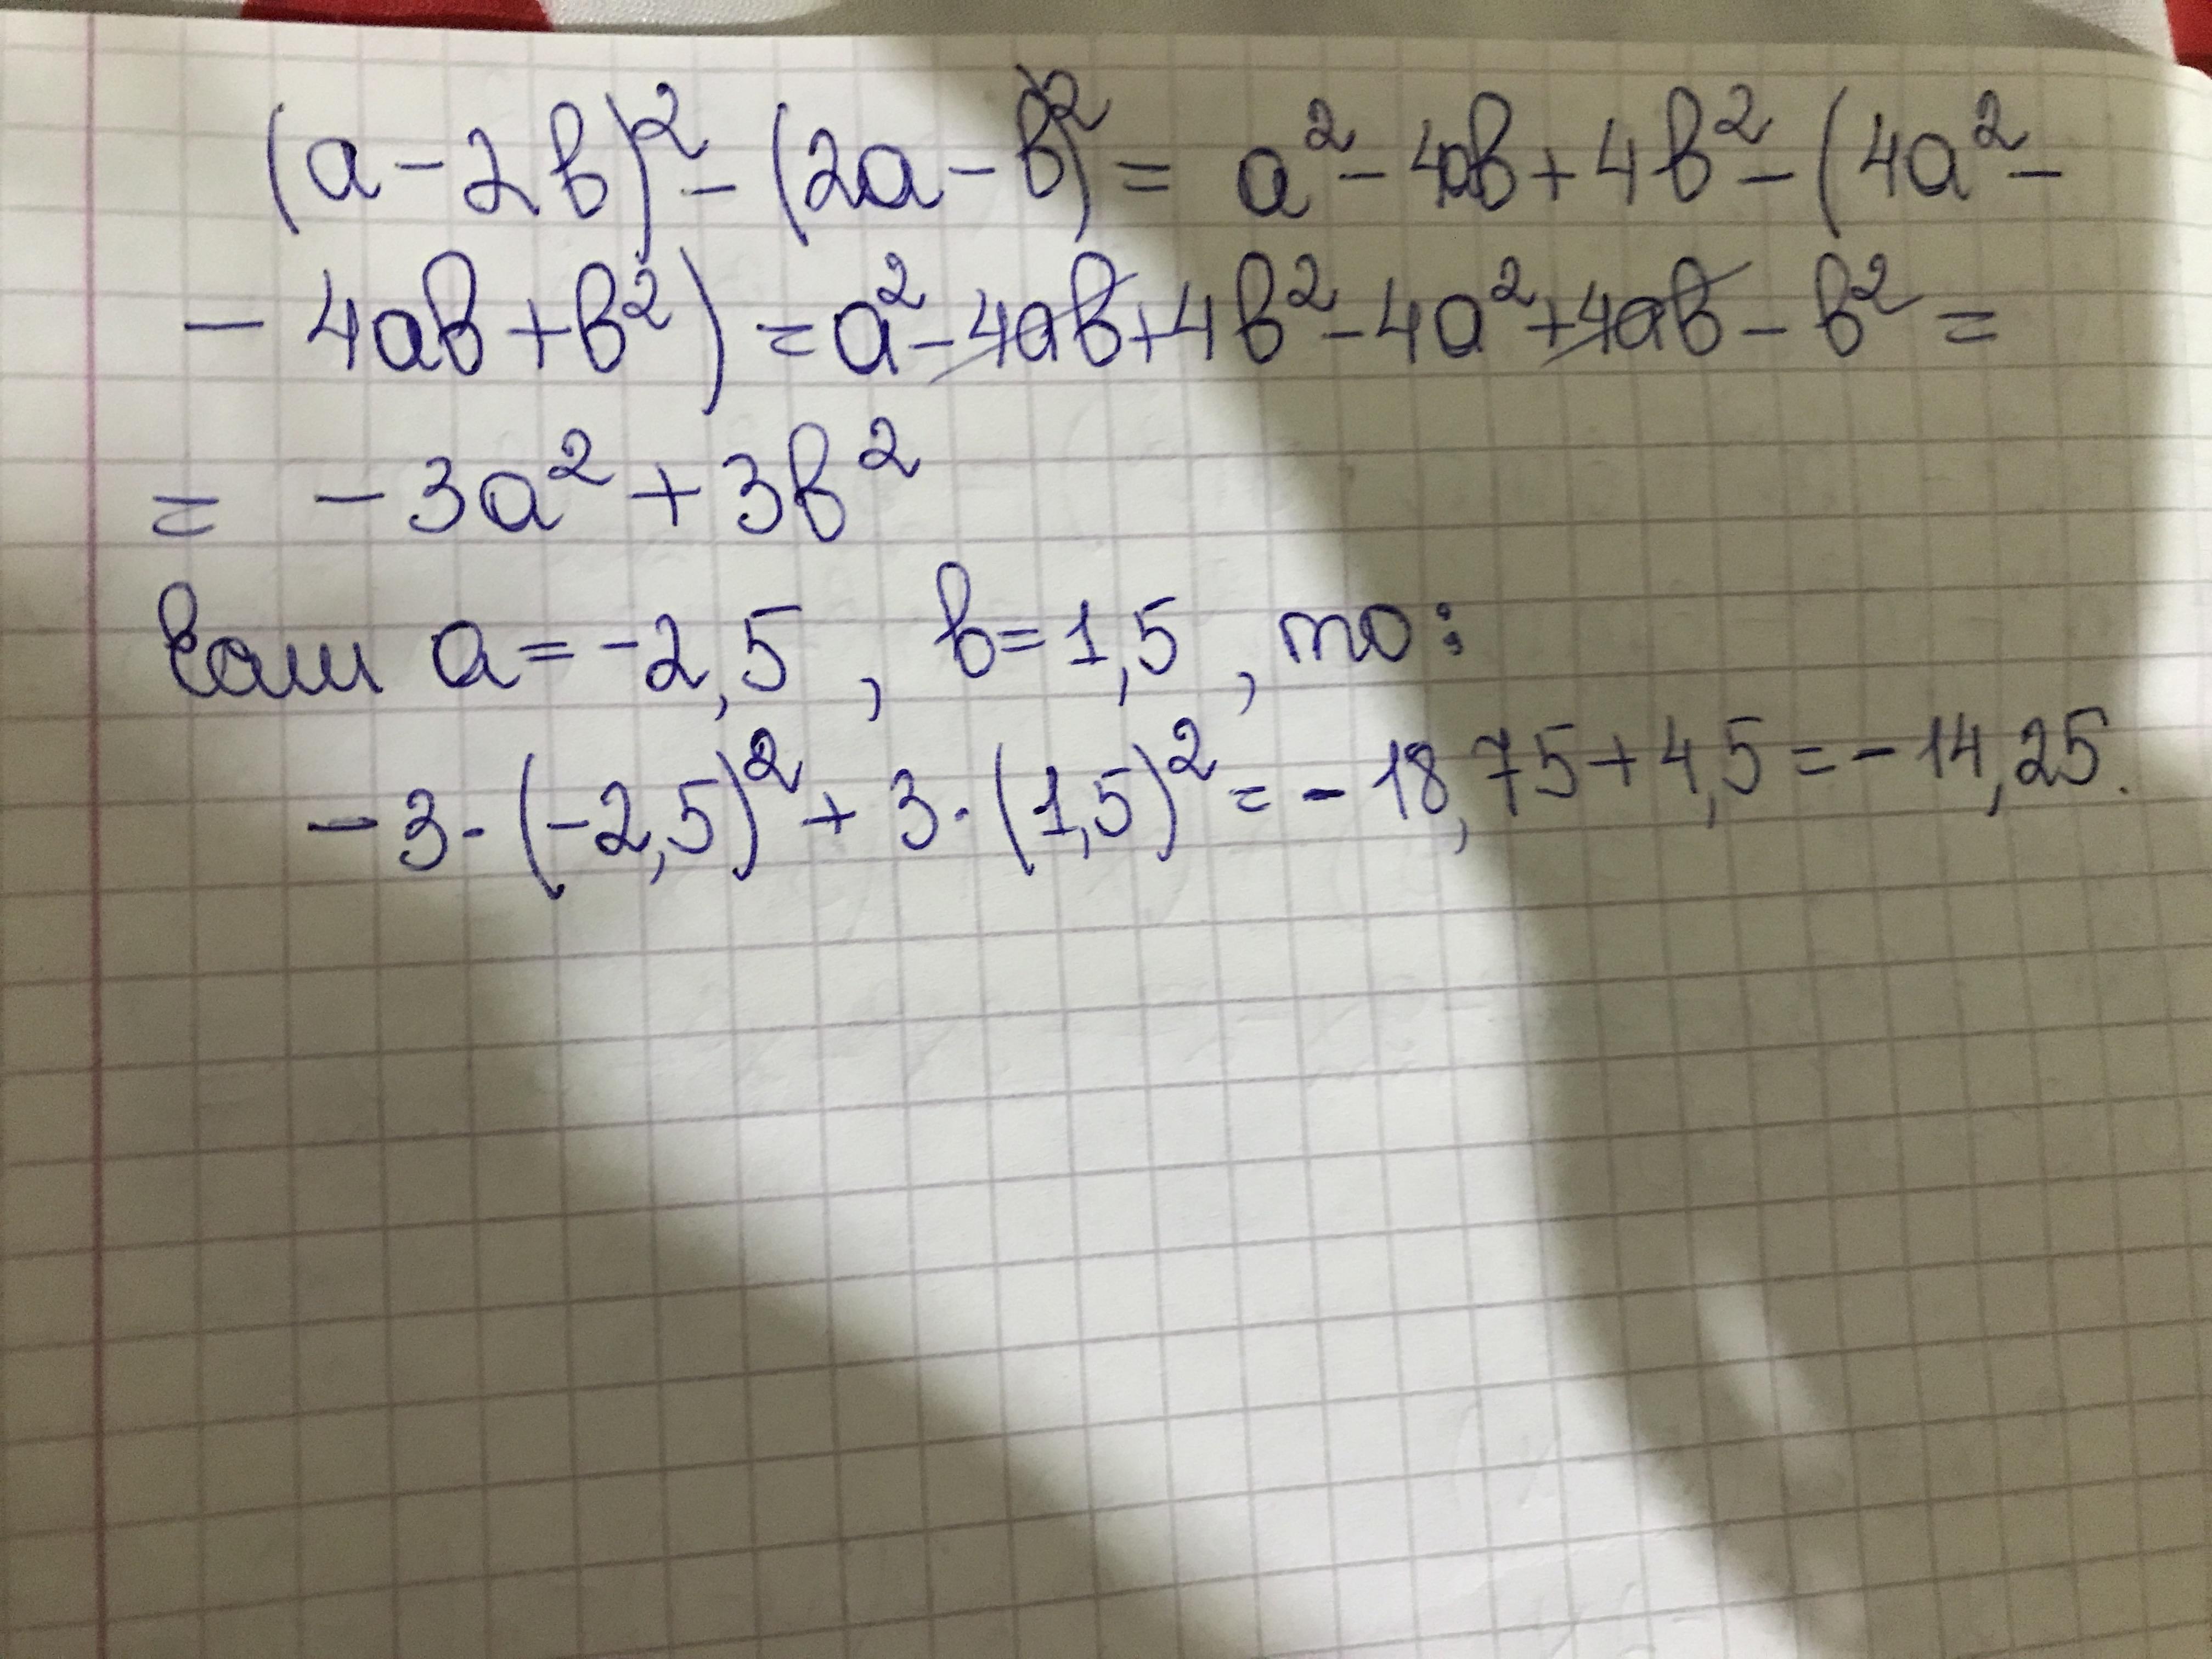 (a-2b)²-(2a-b)²= a²-4ab+4b²-(4a²-
- 4ab+b²)=a²-4ab+4b²-4a²+4ab-b²=
= -3a²+3b²
Если a=-2,5, b=1,5, то:
-3·(-2,5)²+3·(1,5)²=-18,75+4,5=-14,25.